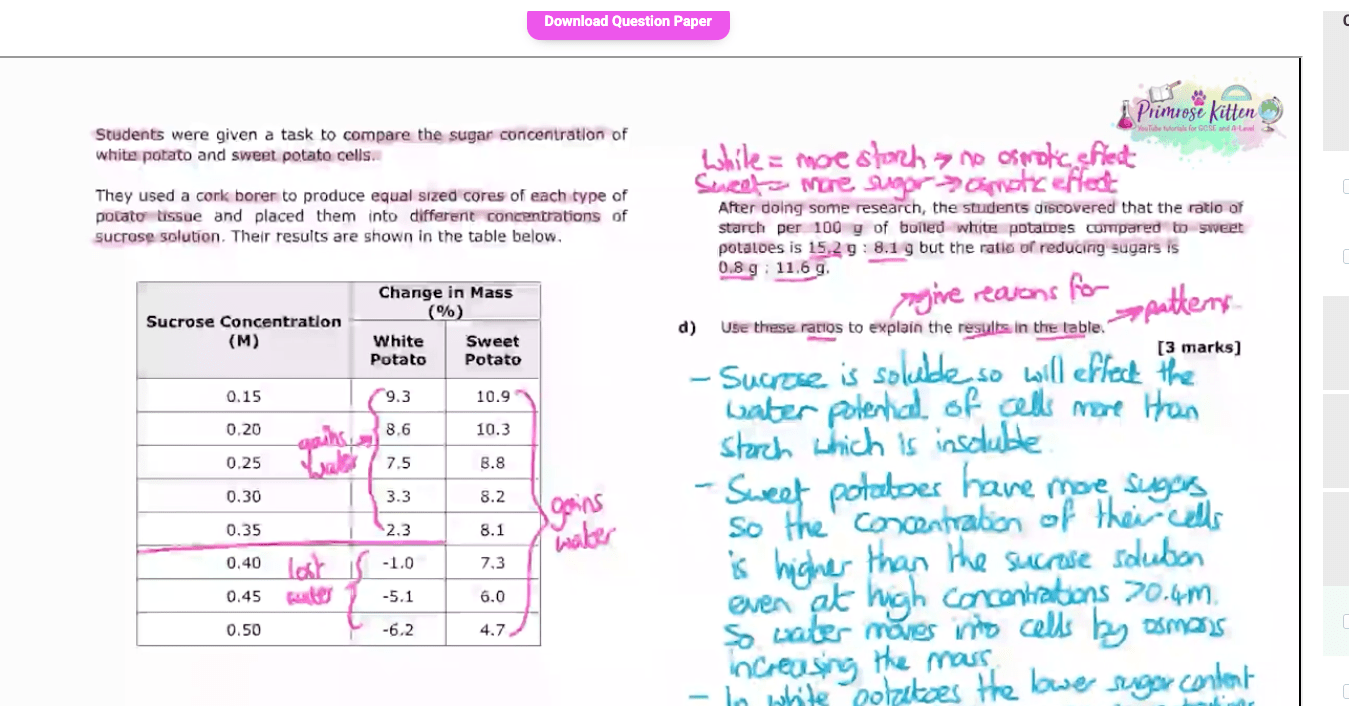 Download Question Paper
Primrose Kitten
YouTube tutorials for GCSE and A-Level
Students were given a task to compare the sugar concentration of
white potato and sweet potato cells.
They used a cork borer to produce equal sized cores of each type of
potato tissue and placed them into different concentrations of
sucrose solution. Their results are shown in the table below.
Sucrose Concentration
(M)
Change in Mass
(%)
White
Potato
Sweet
Potato
0.15 9.3 10.9
0.20 8.6 10.3
0.25 7.5 8.8
0.30 3.3 8.2
0.35 2.3 8.1
0.40 -1.0 7.3
0.45 -5.1 6.0
0.50 -6.2 4.7
gains
water
lost
water
gains
water
While = more starch → no osmotic effect
Sweet = more sugar → osmotic effect
After doing some research, the students discovered that the ratio of
starch per 100 g of boiled white potatoes compared to sweet
potatoes is 15.2 g : 8.1 g but the ratio of reducing sugars is
0.8 g : 11.6 g.
give reasons for
→ patterns
d) Use these ratios to explain the results in the table.
[3 marks]
- Sucrose is soluble so will effect the
water potential of cells more than
starch which is insoluble
- Sweet potatoes have more sugars
so the concentration of their cells
is higher than the sucrose solution
even at high concentrations >0.4m.
So water moves into cells by osmosis
increasing the mass
- In white potatoes the lower sugar content